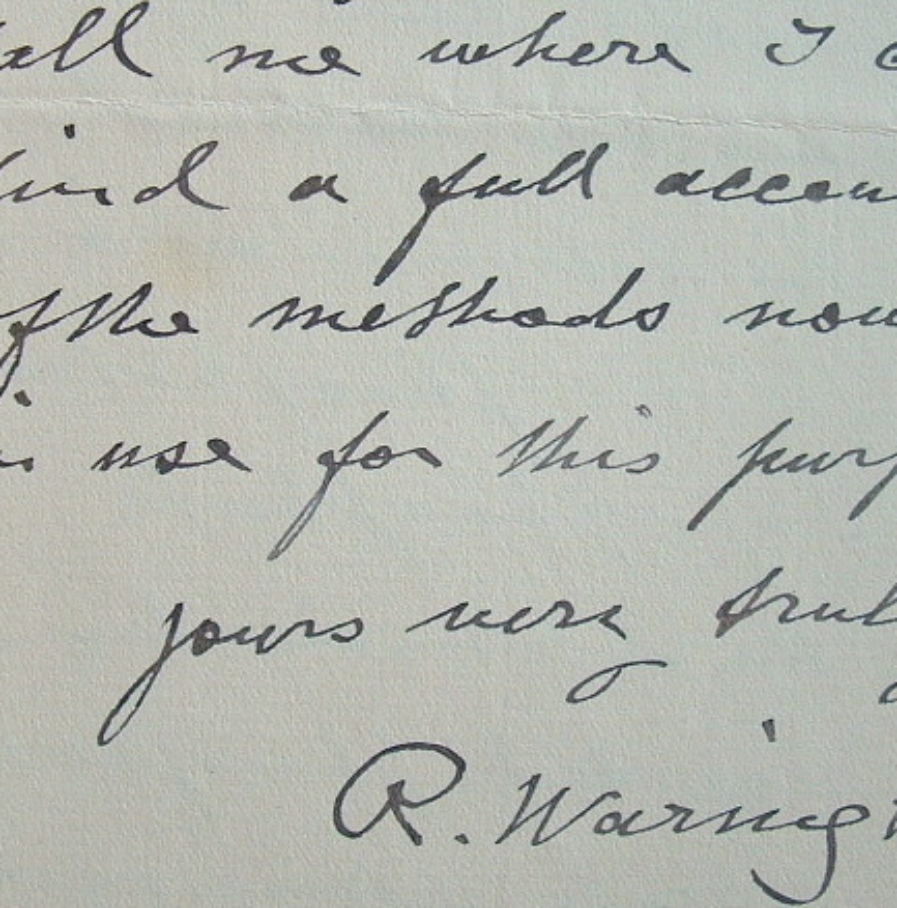 tell me where I
find a full accoun
of the methods now
in use for this purp
yours very truly
R. Waringt